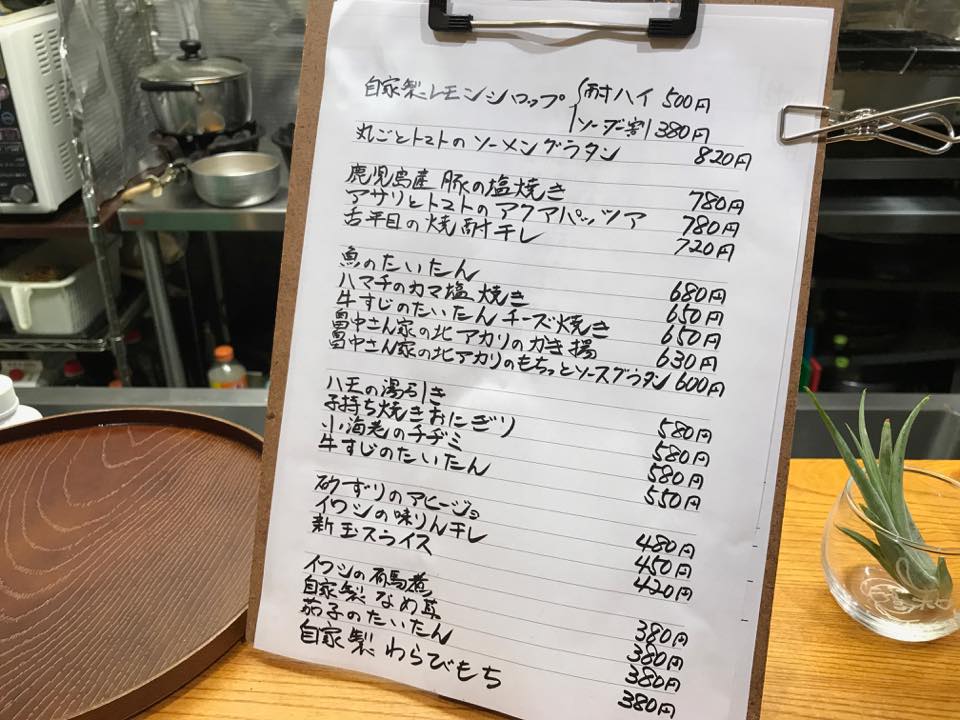 自家製レモンシロップ 耐ハイ 500円
ソーダ割 380円
丸ごとトマトのソーメングラタン 820円
鹿児島産 豚の塩焼き 780円
アサリとトマトのアクアパッツア 780円
舌平目の焼酎干し 720円
魚のたいたん 680円
ハマチのカマ塩焼き 650円
牛すじのたいたんチーズ焼き 650円
畠中さん家の北アカリのかき揚 630円
畠中さん家の北アカリのもちっとソースグラタン 600円
ハモの湯引き 580円
子持ち焼きおにぎり 580円
小海老のチヂミ 580円
牛すじのたいたん 550円
砂ずりのアヒージョ 480円
イワシの味りん干し 450円
新玉スライス 420円
イワシの有馬煮 380円
自家製なめ茸 380円
茄子のたいたん 380円
自家製わらびもち 380円